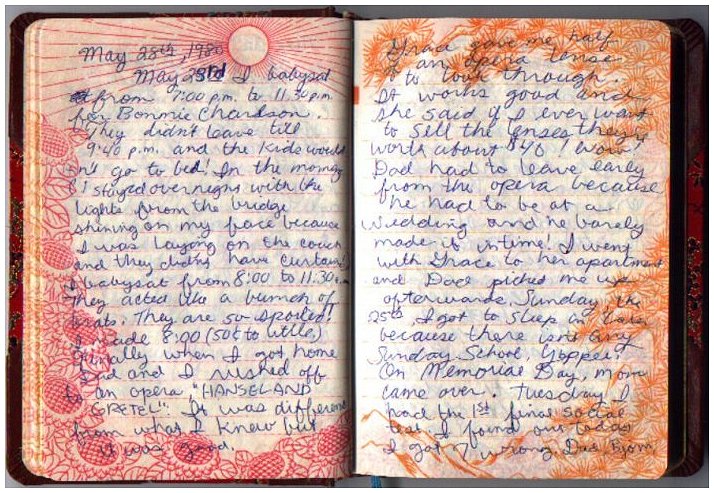 May 28th, 1980
May 23rd I babysat
from 7:00 p.m. to 11:30 p.m.
for Bonnie Chardson.
They didn't leave till
9:40 p.m. and the kids would
n't go to bed! In the morning
I stayed overnight with the
lights from the bridge
shining on my face because
I was laying on the couch
and they didn't have curtains!
I babysat from 8:00 to 11:30 a.m.
They acted like a bunch of
brats. They are so spoiled!
I made 8:00 (50¢ to little)
Finally when I got home
Dad and I rushed off
to an opera, "HANSEL AND
GRETEL". It was different
from what I knew but
it was good.
Grace gave me half
of an opera lense
to look through.
It works good and
she said if I ever want
to sell the lenses they're
worth about $40! Wow!
Dad had to leave early
from the opera because
he had to be at a
wedding and he barely
made it in time! I went
with Grace to her apartment
and Dad picked me up
afterwards. Sunday the
25th, I got to sleep in late
because there isn't any
Sunday School, Yippee!
On Memorial Day, mom
came over. Tuesday I
had the 1st final social
test. I found out today
I got 7 wrong. Dad, Bjorn,